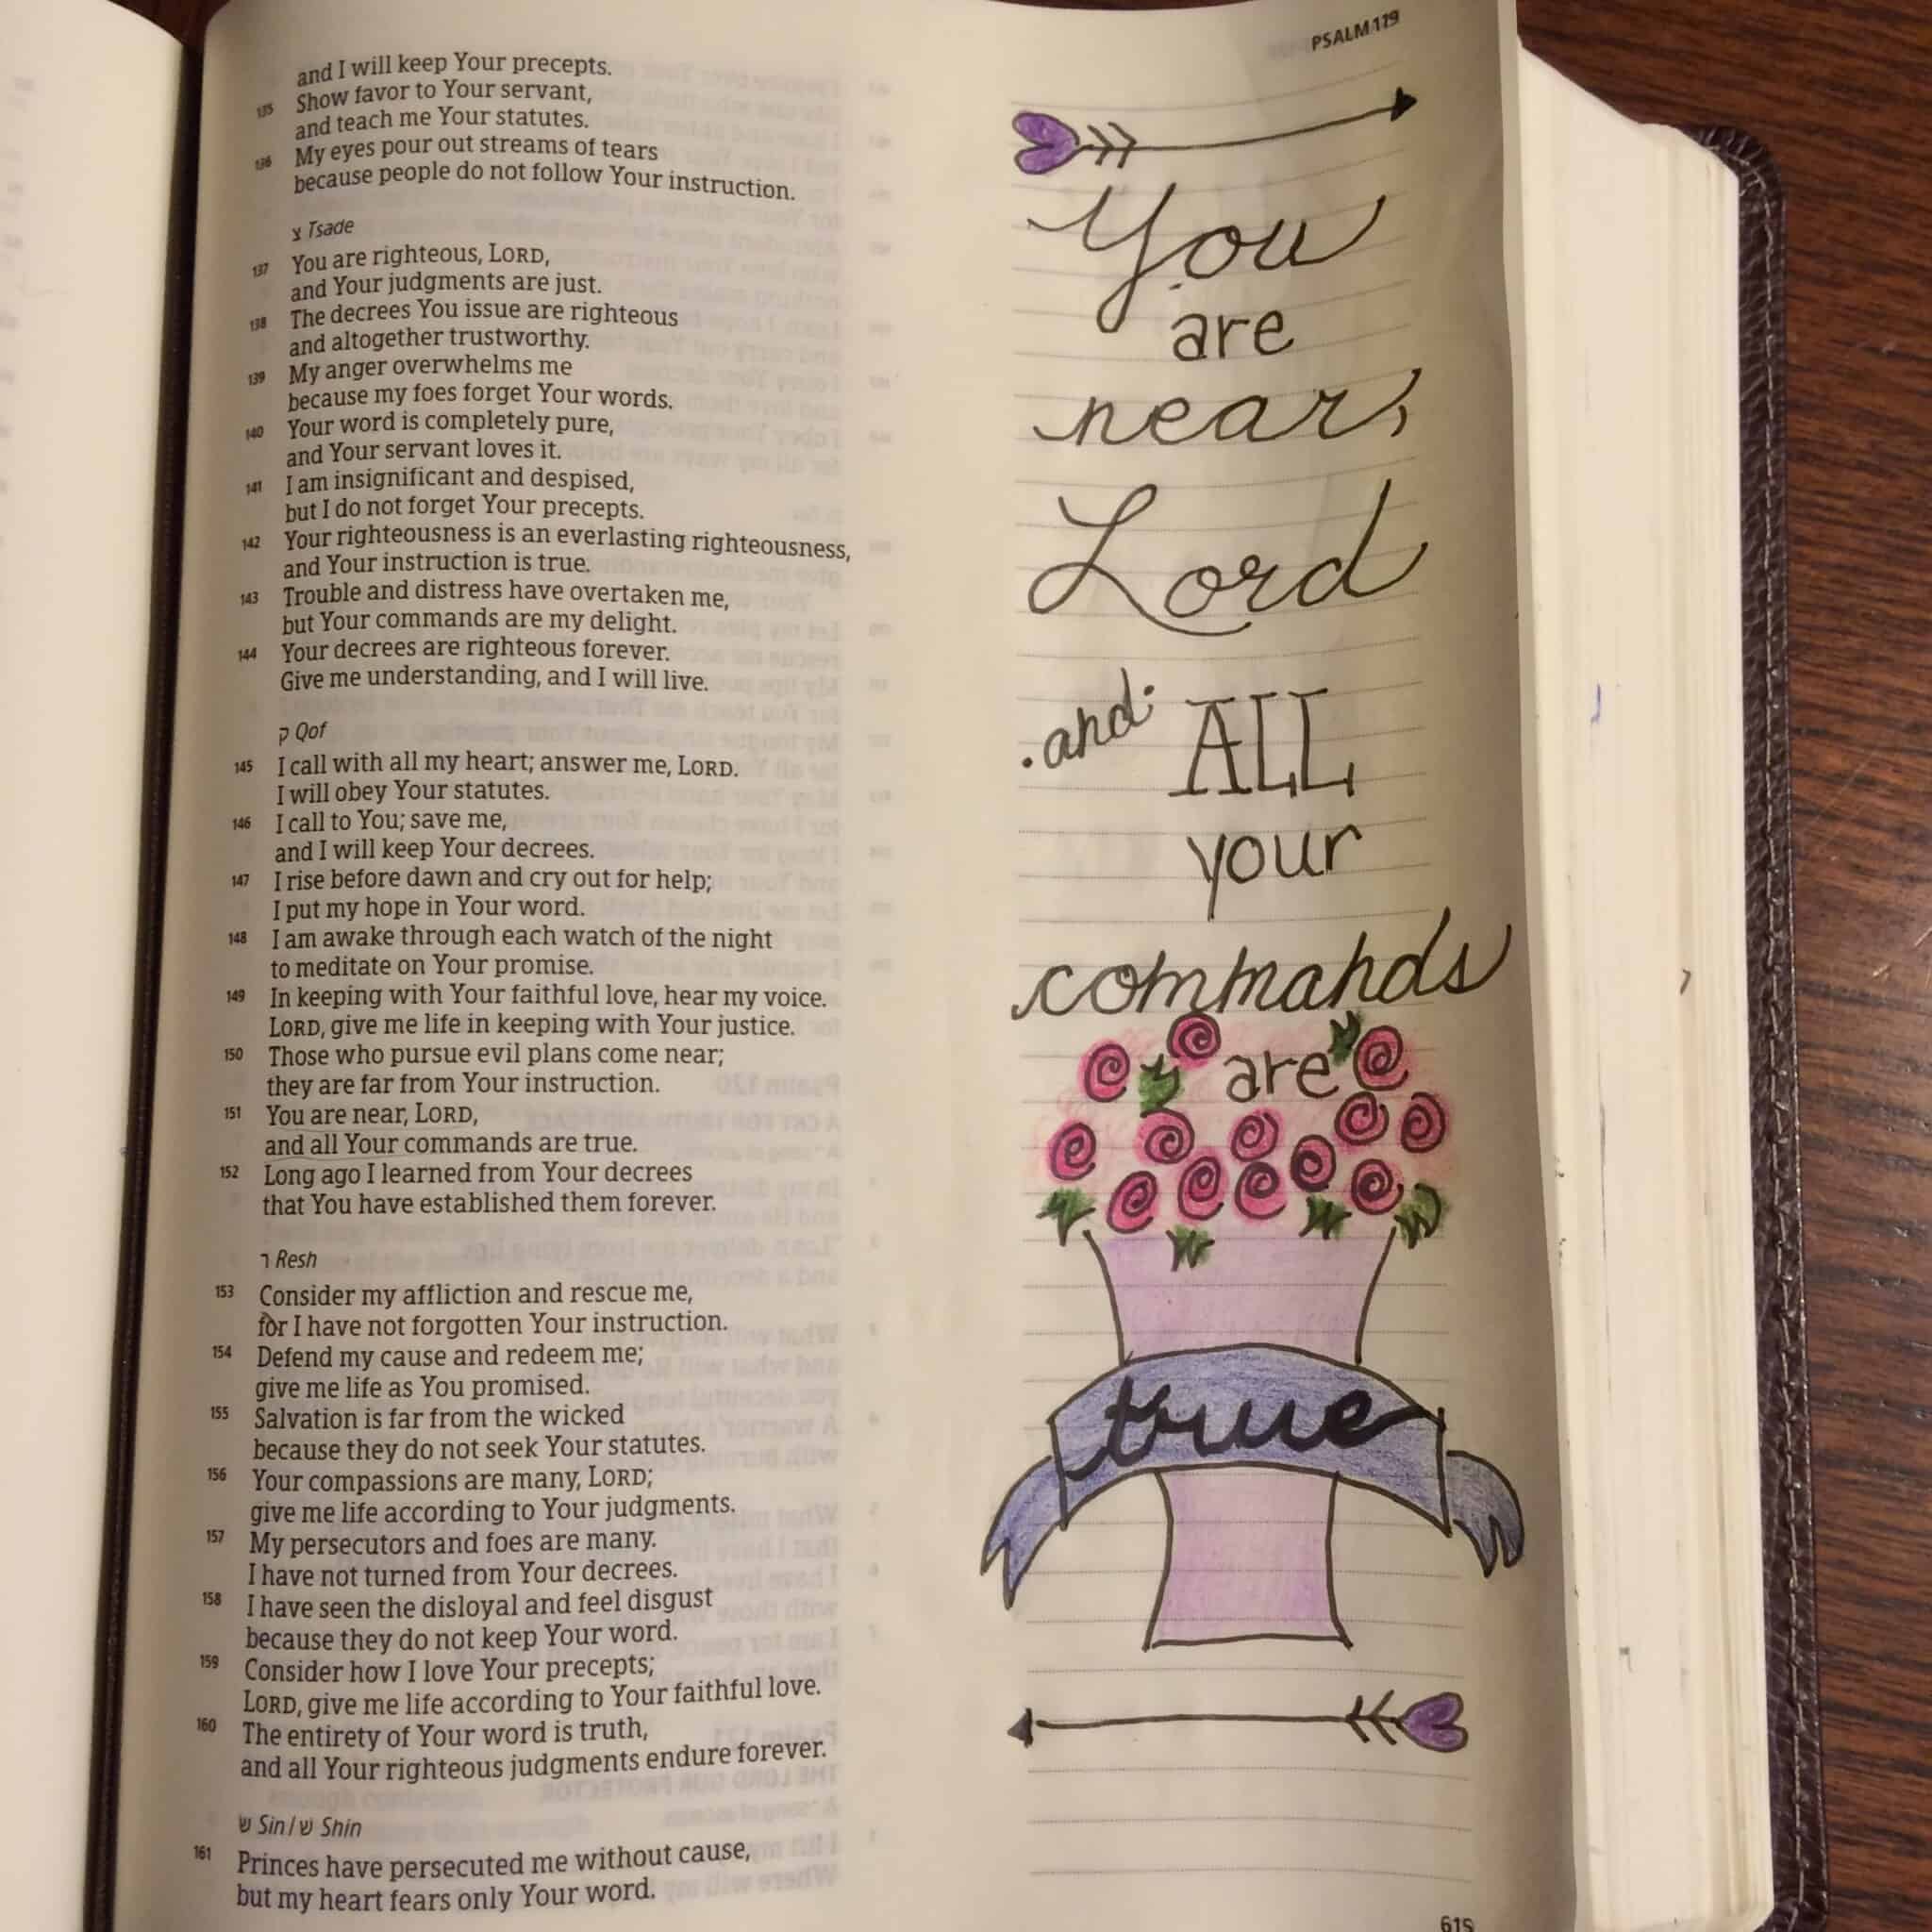 PSALM 119
and I will keep Your precepts.
135 Show favor to Your servant,
and teach me Your statutes.
136 My eyes pour out streams of tears
because people do not follow Your instruction.
צ Tsade
137 You are righteous, LORD,
and Your judgments are just.
138 The decrees You issue are righteous
and altogether trustworthy.
139 My anger overwhelms me
because my foes forget Your words.
140 Your word is completely pure,
and Your servant loves it.
141 I am insignificant and despised,
but I do not forget Your precepts.
142 Your righteousness is an everlasting righteousness,
and Your instruction is true.
143 Trouble and distress have overtaken me,
but Your commands are my delight.
144 Your decrees are righteous forever.
Give me understanding, and I will live.
ק Qof
145 I call with all my heart; answer me, LORD.
I will obey Your statutes.
146 I call to You; save me,
and I will keep Your decrees.
147 I rise before dawn and cry out for help;
I put my hope in Your word.
148 I am awake through each watch of the night
to meditate on Your promise.
149 In keeping with Your faithful love, hear my voice.
LORD, give me life in keeping with Your justice.
150 Those who pursue evil plans come near;
they are far from Your instruction.
151 You are near, LORD,
and all Your commands are true.
152 Long ago I learned from Your decrees
that You have established them forever.
ר Resh
153 Consider my affliction and rescue me,
for I have not forgotten Your instruction.
154 Defend my cause and redeem me;
give me life as You promised.
155 Salvation is far from the wicked
because they do not seek Your statutes.
156 Your compassions are many, LORD;
give me life according to Your judgments.
157 My persecutors and foes are many.
I have not turned from Your decrees.
158 I have seen the disloyal and feel disgust
because they do not keep Your word.
159 Consider how I love Your precepts;
LORD, give me life according to Your faithful love.
160 The entirety of Your word is truth,
and all Your righteous judgments endure forever.
שׂ Sin / שׁ Shin
161 Princes have persecuted me without cause,
but my heart fears only Your word.
You
are
near,
Lord
and ALL
your
commands
are
true
615